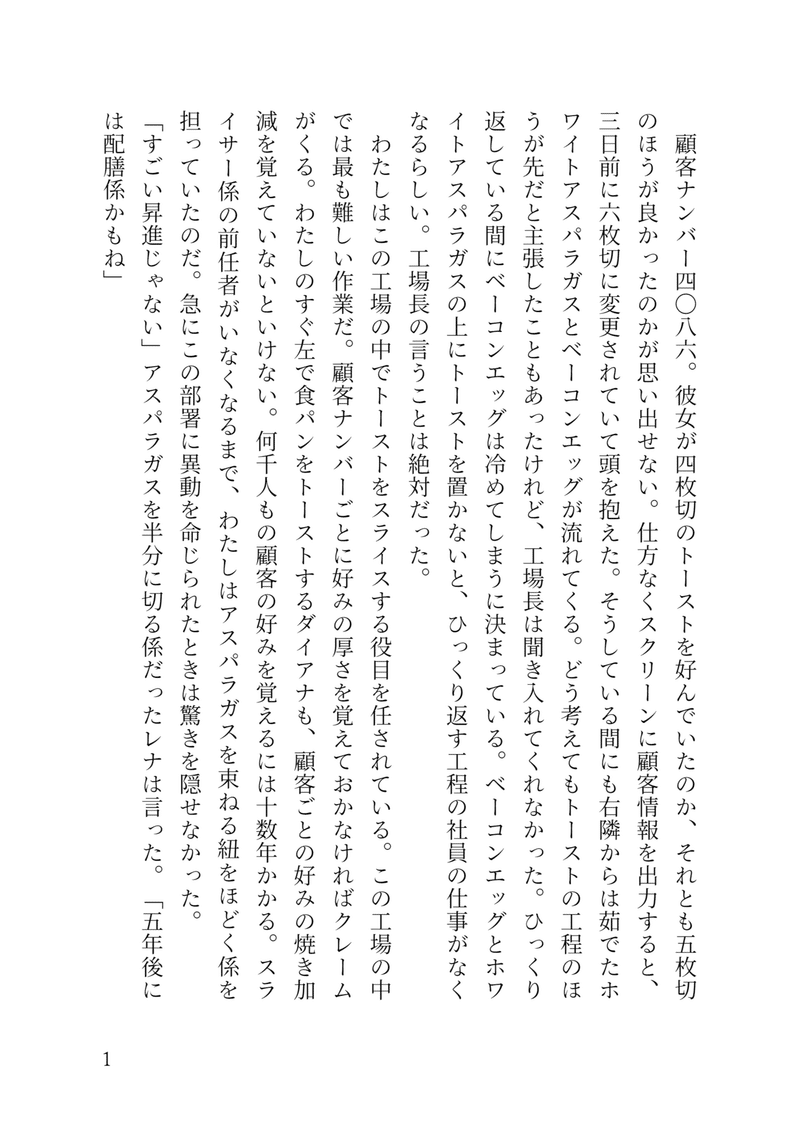 顧客ナンバー四〇八六。彼女が四枚切のトーストを好んでいたのか、それとも五枚切
のほうが良かったのかが思い出せない。仕方なくスクリーンに顧客情報を出力すると、
三日前に六枚切に変更されていて頭を抱えた。そうしている間にも右隣からは茹でたホ
ワイトアスパラガスとベーコンエッグが流れてくる。どう考えてもトーストの工程のほ
うが先だと主張したこともあったけれど、工場長は聞き入れてくれなかった。ひっくり
返している間にベーコンエッグは冷めてしまうに決まっている。ベーコンエッグとホワ
イトアスパラガスの上にトーストを置かないと、ひっくり返す工程の社員の仕事がなく
なるらしい。工場長の言うことは絶対だった。
　わたしはこの工場の中でトーストをスライスする役目を任されている。この工場の中
では最も難しい作業だ。顧客ナンバーごとに好みの厚さを覚えておかなければクレーム
がくる。わたしのすぐ左で食パンをトーストするダイアナも、顧客ごとの好みの焼き加
減を覚えていないといけない。何千人もの顧客の好みを覚えるには十数年かかる。スラ
イサー係の前任者がいなくなるまで、わたしはアスパラガスを束ねる紐をほどく係を
担っていたのだ。急にこの部署に異動を命じられたときは驚きを隠せなかった。
「すごい昇進じゃない」アスパラガスを半分に切る係だったレナは言った。「五年後に
は配膳係かもね」
1